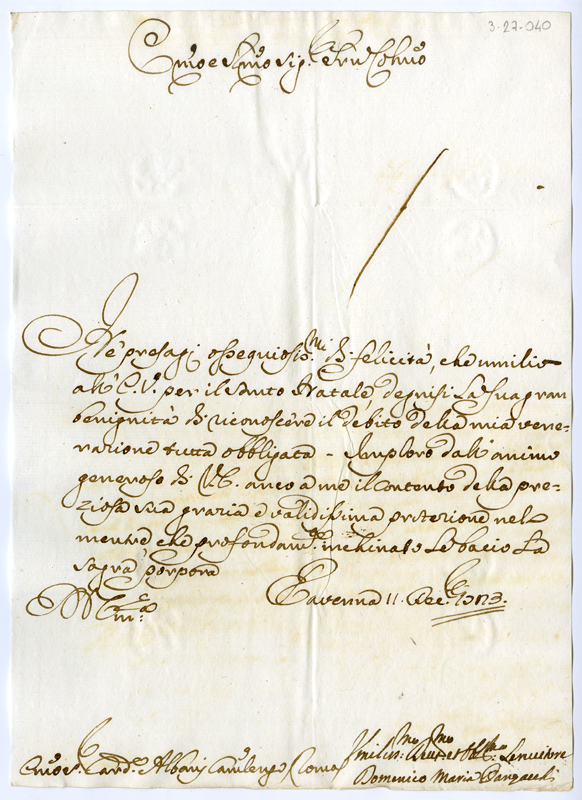 3-27-040
Emo e Rmo Sig.r Prn. Colmo
Ne' presagj ossequiosis.mi di felicità, che umilio
all' E. V. per il Santo Natale degnisi La Sua gran
benignità di riconoscere il debito della mia vene-
razione tutta obbligata. Imploro dall' animo
generoso di V. E. anco a me il contento della pre-
ziosa sua grazia e validissima protezione nel
mentre che profondam.e inchinato Le bacio La
sagra porpora
Di V. Em.a
Ravenna 11. Dec.e 1723.
Emo Sr. Card. Albani Camerlengo Roma
Umilis.mo Devot.mo et Obb.mo Servitore
Domenico Maria